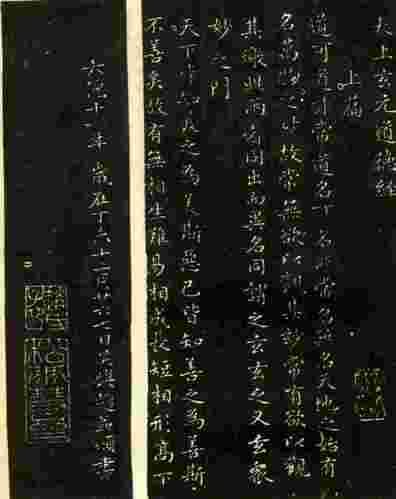 太上玄元道德經
上篇
道可道非常道名可名非常名無名天地之始有
名萬物之母故常無欲以觀其妙常有欲以觀
其徼此兩者同出而異名同謂之玄玄之又玄衆
妙之門
天下皆知美之為美斯惡已皆知善之為善斯
不善矣故有無相生難易相成長短相形高下
大德十一年歲在丁未十一月廿六七日吳興趙孟頫書